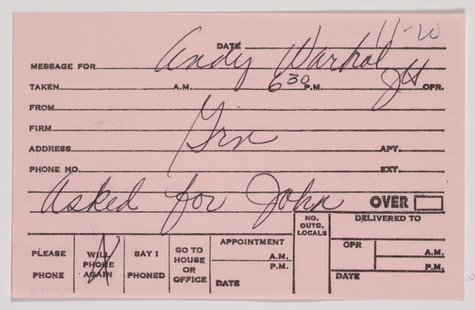 DATE 11-20
MESSAGE FOR Andy Warhol
TAKEN A.M. 6 30 P.M. JH OPR.
FROM
FIRM Grn
ADDRESS APT.
PHONE NO. EXT.
Asked for John OVER
PLEASE PHONE
WILL PHONE AGAIN
SAY I PHONED
GO TO HOUSE OR OFFICE
APPOINTMENT
A.M.
P.M.
DATE
NO. OUTG. LOCALS
DELIVERED TO
OPR
A.M.
P.M.
DATE